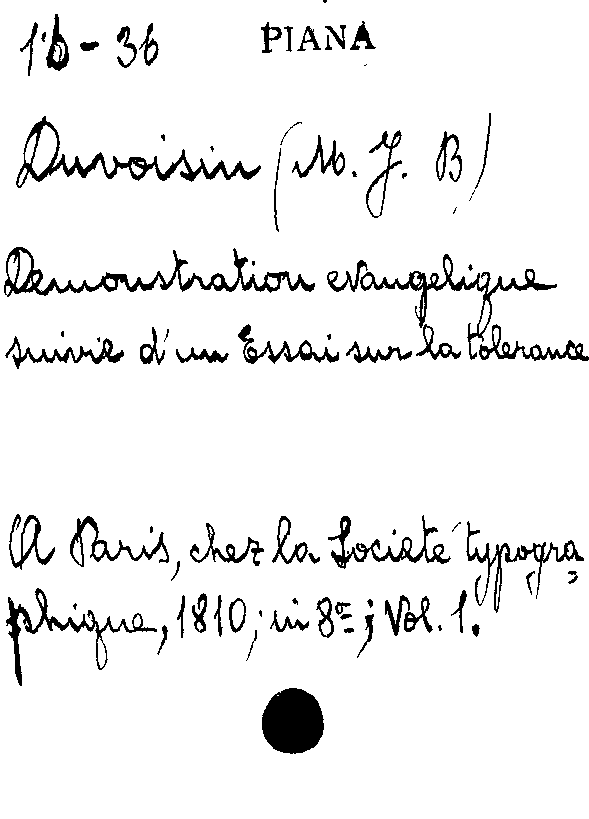 16-36 PIANA
Duvoisin (M. J. B)
Demonstration evangelique
suivie d'un Essai sur la tolerance
A Paris, chez la Societé typogra
phique, 1810; in 8º; Vol. 1.